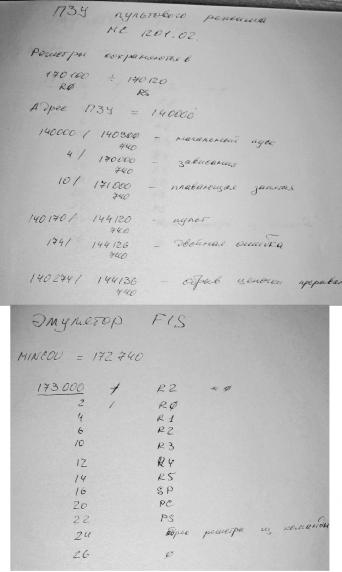 ПЗУ пультового режима
МС 1201.02.
Регистры сохраняются в
170100 ÷ 170120
R0 RS
Адрес ПЗУ = 140000
140000/ 140300 - начальный пуск
740
4/ 170000 - зависание
740
10/ 171000 - плавающая запятая
740
140170/ 144120 - пульт
740
174/ 144126 - двойная ошибка
740
140274/ 144136 - обрыв цепочки прерыван
740
Эмулятор FIS
MINCOU = 172740
173000 R2
2 / R0
4 R1
6 R2
10 R3
12 R4
14 R5
16 SP
20 PC
22 PS
24 адрес регистра из команды
26 0